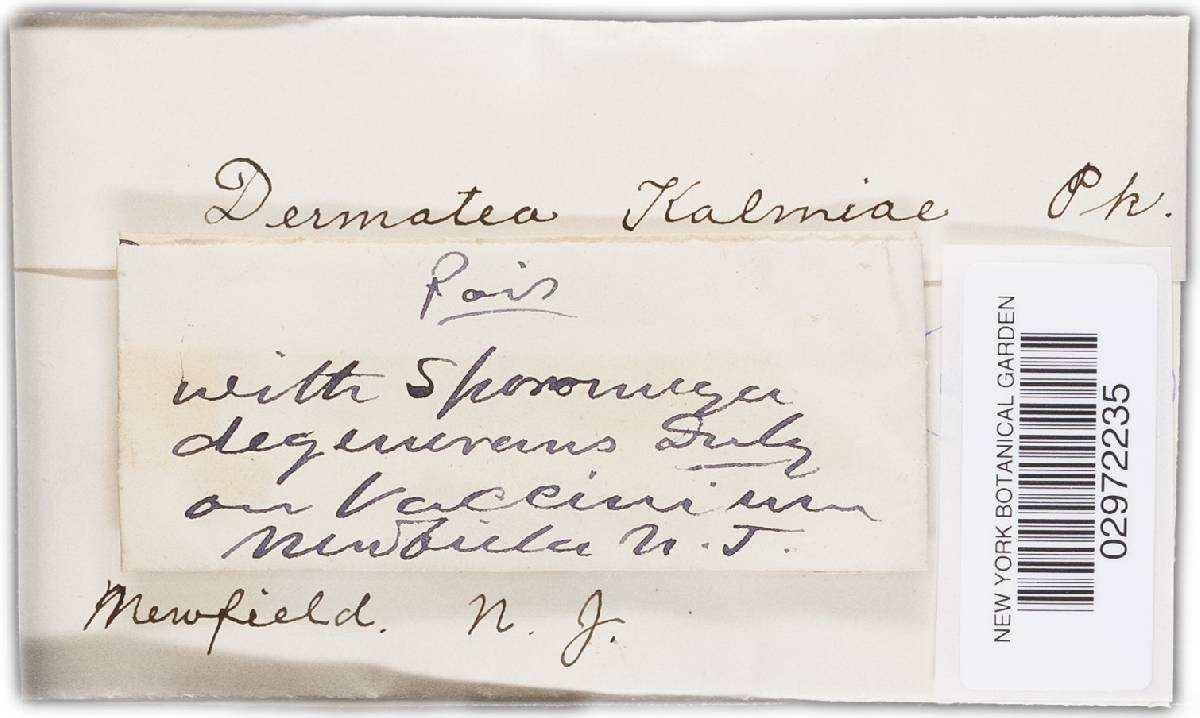 Dermatea Kalmiae Pk.
with Sporomega
degenerans Duby
on Vaccinium
Newfield N. J.
Newfield. N. J.
NEW YORK BOTANICAL GARDEN
02972235